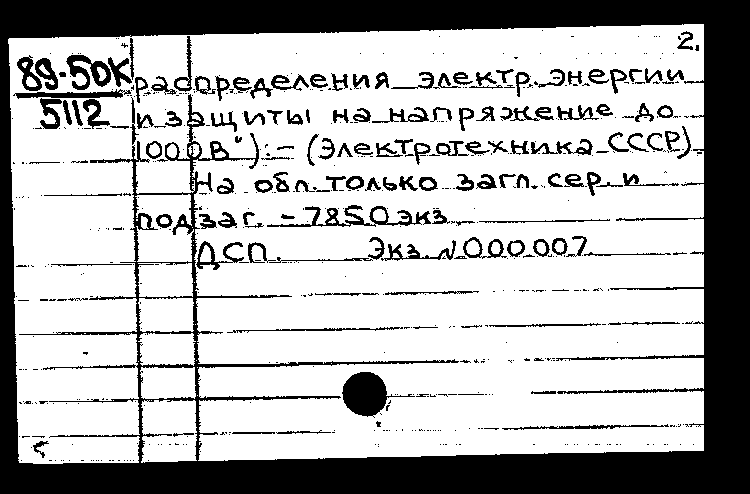 2.
89-50К
5112
распределения электр. энергии
и защиты на напряжение до
1000В"). – (Электротехника СССР).
На обл. только загл. сер. и
подзаг. – 7850 экз.
ДСП. Экз. №000007.